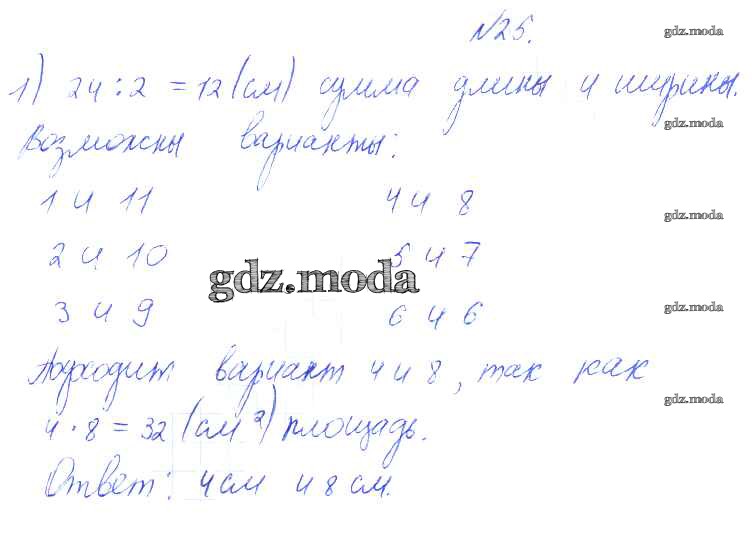 №25.
gdz.moda
1) 24 : 2 = 12 (см) сумма длины и ширины.
gdz.moda
Возможны варианты:
1 и 11 4 и 8
gdz.moda
2 и 10 5 и 7
gdz.moda
3 и 9 6 и 6
gdz.moda
Подходит вариант 4 и 8, так как
gdz.moda
4 · 8 = 32 (см²) площадь.
Ответ: 4 см и 8 см.